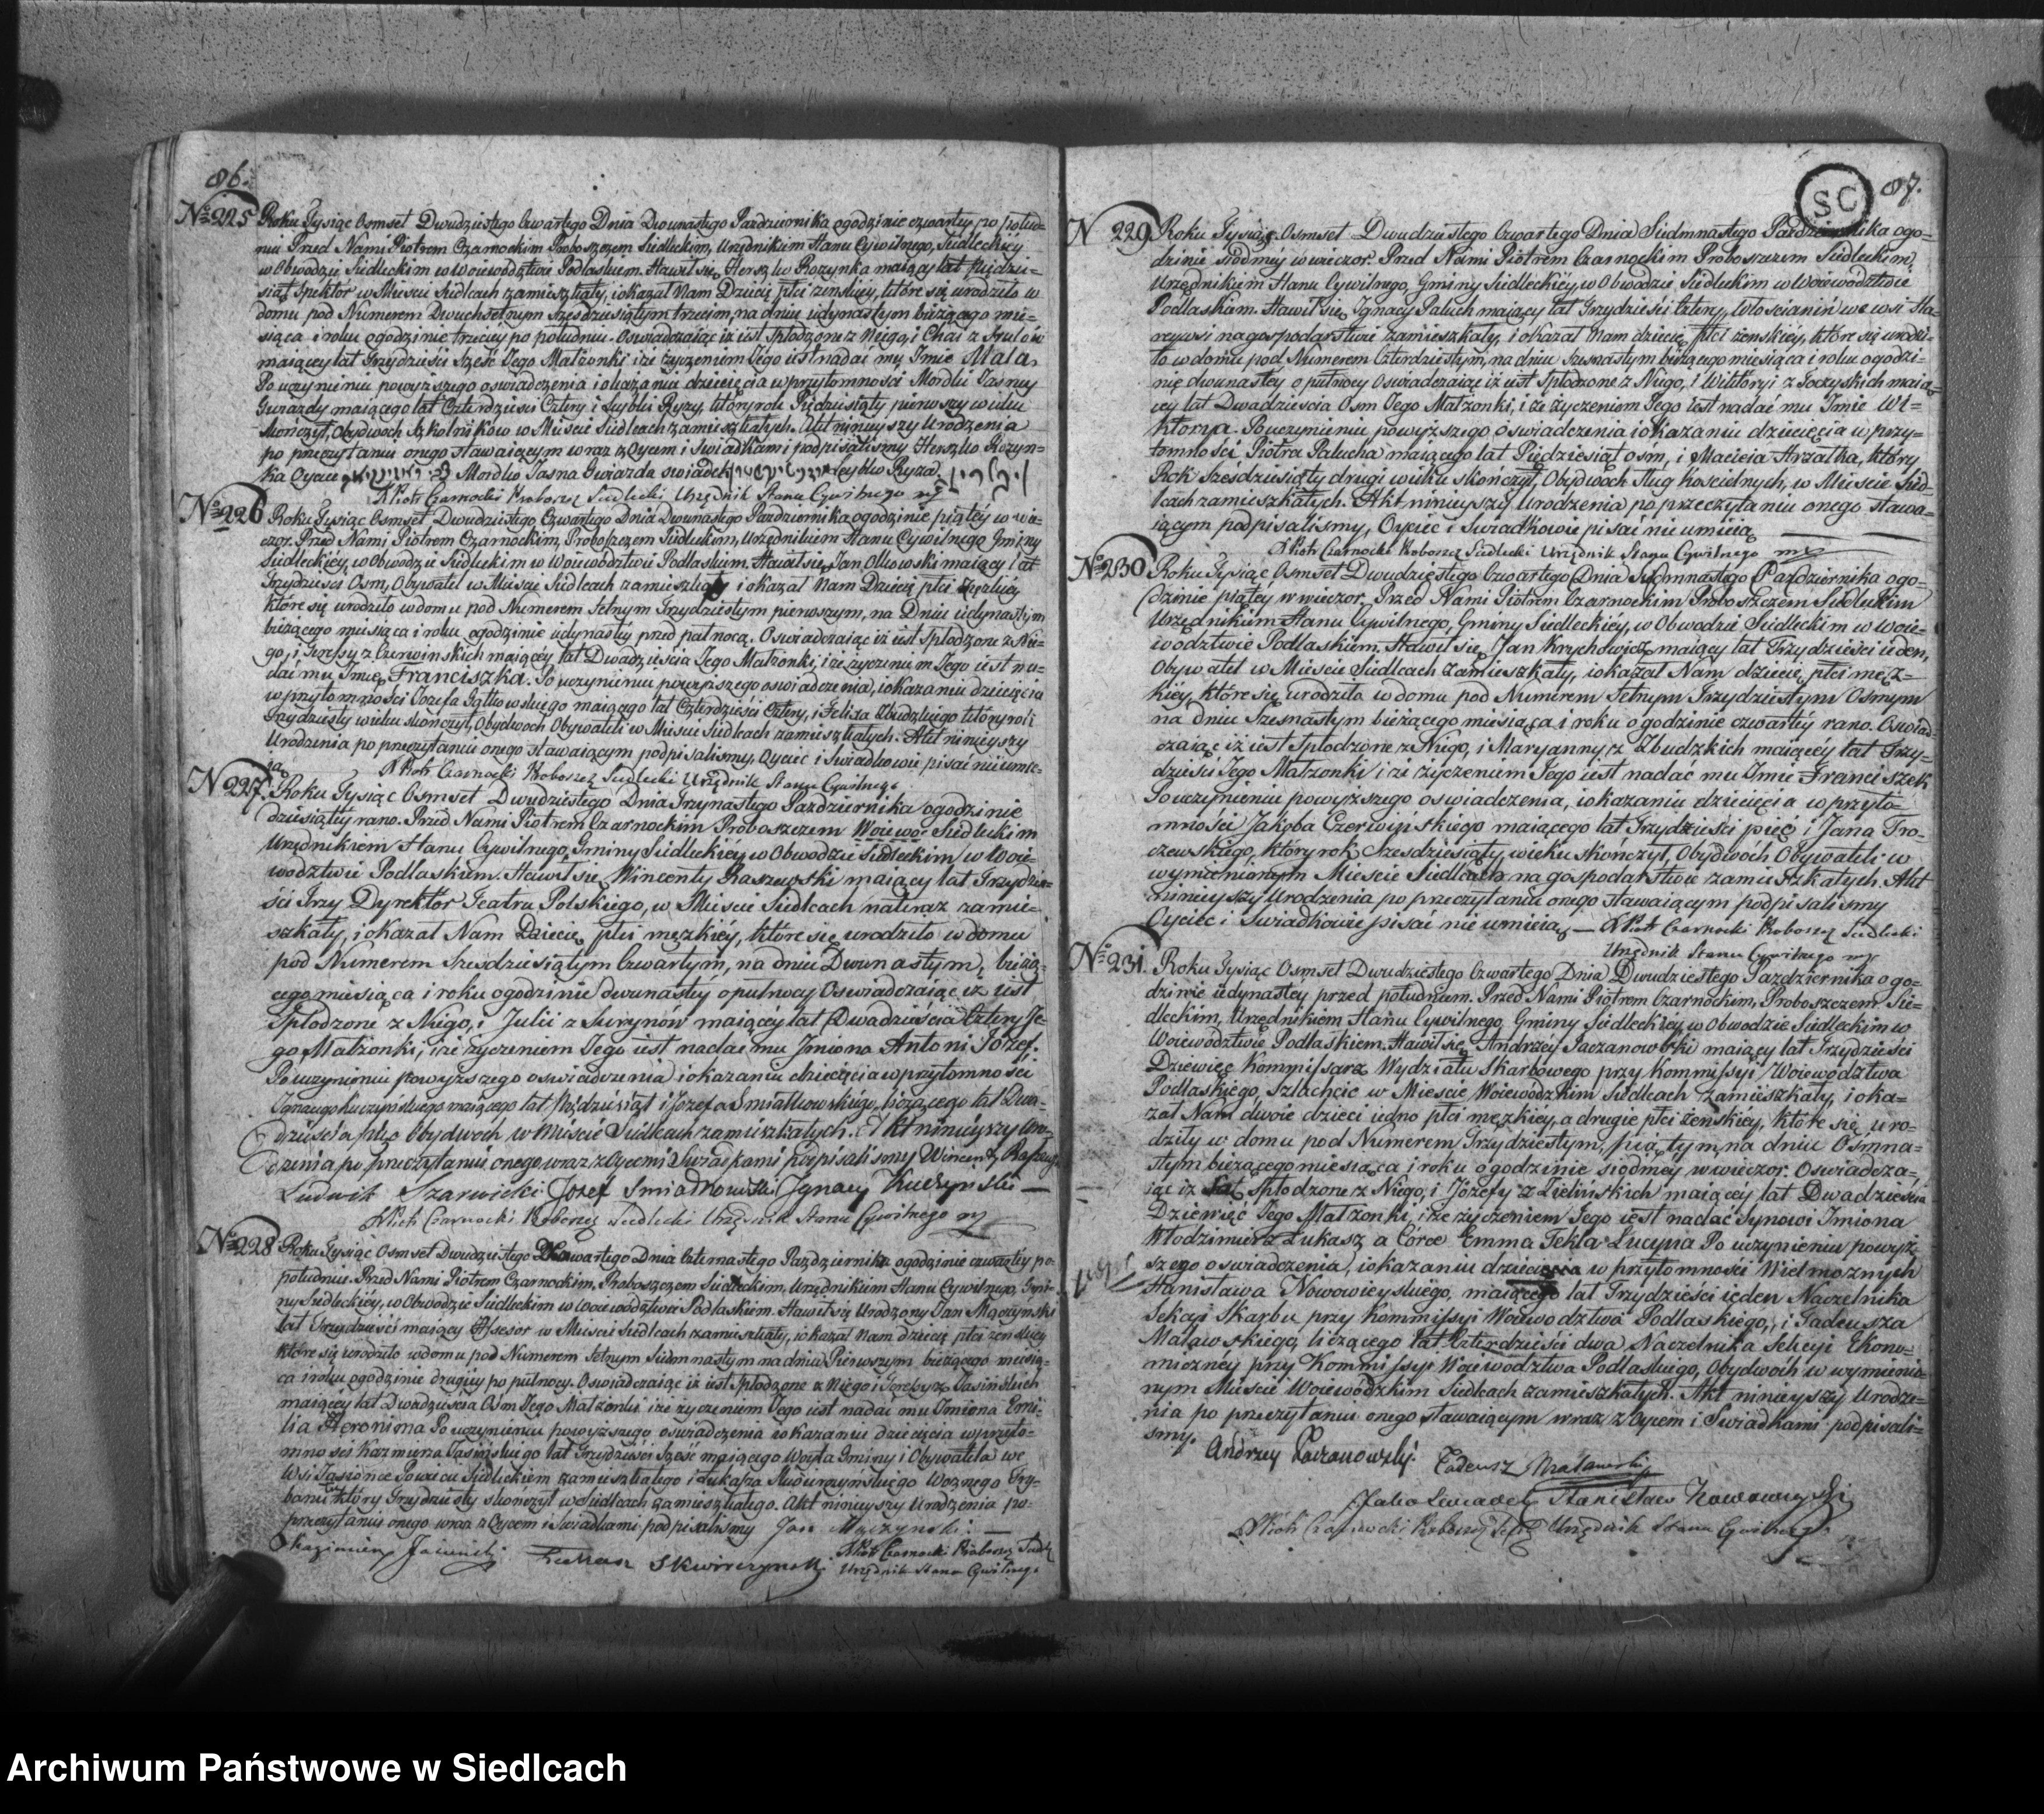 86.
№ 225 Roku Tysiąc Osmset Dwudziestego Czwartego Dnia Dwunastego Pazdziernika ogodzinie czwartey po połud=
niu Przed Nami Piotrem Czarnockim Proboszczem Siedleckim, Urzędnikiem Stanu Cywilnego, Siedleckiey
w Obwodzie Siedleckim w Woiewodztwie Podlaskiem. Stawił się Herszko Rozynka maiący lat pięćdzie=
siąt Spektor w Mieście Siedlcach zamieszkały, i okazał Nam Dziecię płci zenskiey, które się urodziło w
domu pod Numerem Dwuchsetnym Szesdziesiątym trzecim, na dniu iedynastym bieżącego mie=
siąca i roku ogodzinie trzeciey po południu. Oswiadczaiąc iż iest spłodzone z Niego, i Chai z
maiącey lat Trzydzieści Sześć Jego Małżonki i że życzeniem Jego iest nadać mu Imie Mala.
Po uczynieniu powyższego oswiadczenia i okazaniu dziecięcia w przytomności Mordki Jasney
Gwiazdy maiącego lat Czterdzieści Cztery i Leybki Ryzy, który rok Pięćdziesiąty pierwszy wieku
skończył, Obydwoch Szkolników w Mieście Siedlcach zamieszkałych. Akt ninieyszy Urodzenia
po przeczytaniu onego stawaiącym wraz z Oycem i Swiadkami podpisalismy Herszko Rozyn=
ka Oyciec Mordko Jasna Gwiazda swiadek Leybko Ryza
X Piotr Czarnocki Proboszcz Siedlecki Urzędnik Stanu Cywilnego mp
№ 226 Roku Tysiąc Osmset Dwudziestego Czwartego Dnia Dwunastego Pazdziernika ogodzinie piątey w wie=
czor. Przed Nami Piotrem Czarnockim, Proboszczem Siedleckim, Urzędnikiem Stanu Cywilnego Gminy
Siedleckiey, w Obwodzie Siedleckim w Woiewodztwie Podlaskiem. Stawił się Jan Olkowski maiący lat
Trzydzieści Osm, Obywatel w Mieście Siedlcach zamieszkały i okazał Nam Dziecię płci
które się urodziło w domu pod Numerem Setnym Trzydziestym pierwszym, na Dniu iedynastym
bieżącego miesiąca i roku ogodzinie iedynastey przed pułnocą. Oswiadczaiąc iż iest Spłodzone z Nie=
go, i Teressy z Czerwinskich maiącey lat Dwadzieścia Jego Małżonki, i że życzeniem Jego iest na=
dać mu Imie Franciszka. Po uczynieniu powyższego oswiadczenia, i okazaniu dziecięcia
w przytomności Jozefa Żółkowskiego maiącego lat Czterdzieści Cztery, i Felixa Zbudzkiego który rok
Trzydziesty wieku skończył, Obydwoch Obywateli w Mieście Siedlcach zamieszkałych. Akt ninieyszy
Urodzenia po przeczytaniu onego stawaiącym podpisalismy, Oyciec i Swiadkowie pisać nie umie=
ią. X Piotr Czarnocki Proboszcz Siedlecki Urzędnik Stanu Cywilnego
N 227. Roku Tysiąc Osmset Dwudziestego Dnia Trzynastego Pazdziernika ogodzinie
dziesiątey rano. Przed Nami Piotrem Czarnockim Proboszczem Woiewo= Siedleckim
Urzędnikiem Stanu Cywilnego, Gminy Siedleckiey w Obwodzie Siedleckim w Woie=
wodztwie Podlaskiem. Stawił się Wincenty Raszewski maiący lat Trzydzie=
ści Trzy Dyrektor Teatru Polskiego, w Mieście Siedlcach na teraz zamie=
szkały, i okazał Nam Dziecię płci męzkiey, które się urodziło w domu
pod Numerem Szesdziesiątym Czwartym, na dniu Dwunastym, bieżą=
cego miesiąca i roku ogodzinie dwunastey o pułnocy Oswiadczaiąc iż iest
Spłodzone z Niego, i Julii z maiącey lat Dwadzieścia Cztery Je=
go Małżonki, i że życzeniem Jego iest nadać mu Imiona Antoni Jozef.
Po uczynieniu powyższego oswiadczenia i okazaniu dziecięcia w przytomności
Ignacego Kuczyńskiego maiącego lat Pięćdziesiąt i Jozefa Smiałkowskiego, liczącego lat Dwa=
dzieścia pięć Obydwoch w Mieście Siedlcach zamieszkałych. Akt ninieyszy Uro=
dzenia po przeczytaniu onego wraz z Oycem i Swiadkami podpisalismy Wincenty
Ludwik Jozef Smiałkowski Ignacy Kuczyński —
X Piotr Czarnocki Proboszcz Siedlecki Urzędnik Stanu Cywilnego mp
№ 228 Roku Tysiąc Osmset Dwudziestego Czwartego Dnia Czternastego Pazdziernika ogodzinie czwartey po=
południu. Przed Nami Piotrem Czarnockim, Proboszczem Siedleckim, Urzędnikiem Stanu Cywilnego, Gmi=
ny Siedleckiey, w Obwodzie Siedleckim w Woiewodztwie Podlaskiem. Stawił się Urodzony Jan Mączynski
lat Trzydzieści maiący Assesor w Mieście Siedlcach zamieszkały, i okazał Nam dziecię płci zenskiey
które się urodziło w domu pod Numerem Setnym Siedmnastym na dniu Pierwszym bieżącego miesią=
ca i roku ogodzinie drugiey po pułnocy. Oswiadczaiąc iż iest Spłodzone z Niego i Teressy z Jasińskich
maiącey lat Dwadzieścia Osm Jego Małżonki i że życzeniem Jego iest nadać mu Imiona Emi=
lia Heronima Po uczynieniu powyższego oswiadczenia i okazaniu dziecięcia w przyto=
mności Kazimierza Jasińskiego lat Trzydzieści Sześć maiącego Woyta Gminy i Obywatela we
Wsi Jasionce Powiecie Siedleckiem zamieszkałego i Łukasza Skwierczyńskiego Woznego Try=
bunału który Trzydziesty skończył w Siedlcach zamieszkałego. Akt ninieyszy Urodzenia po=
przeczytaniu onego wraz z Oycem i Swiadkami podpisalismy Jan Mączynski. —
Kazimierz Jasinski Łukasz Skwierczynski. X Piotr Czarnocki Proboszcz Siedl
Urzędnik Stanu Cywilnego
SC 87.
N 229 Roku Tysiąc Osmset Dwudziestego Czwartego Dnia Siedmnastego Pazdziernika ogo=
dzinie siodmey w wieczor. Przed Nami Piotrem Czarnockim Proboszczem Siedleckim,
Urzędnikiem Stanu Cywilnego, Gminy Siedleckiey, w Obwodzie Siedleckim w Woiewodztwie
Podlaskim. Stawił się Ignacy Paluch maiący lat Trzydzieści Cztery, Włościanin we wsi Sta=
reywsi na gospodarstwie zamieszkały, i okazał Nam dziecię płci żenskiey, które się urodzi=
ło w domu pod Numerem Czterdziestym, na dniu Szesnastym bieżącego miesiąca i roku ogodzi=
nie dwunastey o pułnocy Oswiadczaiąc iż iest Spłodzone z Niego, i Wiktoryi z Toczyskich maią=
cey lat Dwadzieścia Osm Jego Małżonki, i że życzeniem Jego iest nadać mu Imie Wi=
ktorya. Po uczynieniu powyższego oświadczenia i okazaniu dziecięcia w przy=
tomności Piotra Palucha maiącego lat Pięćdziesiąt osm, i Macieia Strzałka, który
Rok Sześdziesiąty drugi wieku skończył, Obydwoch Sług Kościelnych, w Mieście Sied=
lcach zamieszkałych. Akt ninieyszy Urodzenia po przeczytaniu onego stawa=
iącym podpisalismy, Oyciec i Swiadkowie pisać nie umieią.
X Piotr Czarnocki Proboszcz Siedlecki Urzędnik Stanu Cywilnego mp
№ 230 Roku Tysiąc Osmset Dwudziestego Czwartego Dnia Siedmnastego Pazdziernika ogo=
dzinie piątey w wieczor. Przed Nami Piotrem Czarnockim Proboszczem Siedleckim
Urzędnikiem Stanu Cywilnego, Gminy Siedleckiey, w Obwodzie Siedleckim w Woie=
wodztwie Podlaskiem. Stawił się Jan Krychowicz maiący lat Trzydzieści ieden,
Obywatel w Mieście Siedlcach zamieszkały, i okazał Nam dziecię płci męz=
kiey, które się urodziło w domu pod Numerem Setnym Trzydziestym Osmym
na dniu Szesnastym bieżącego miesiąca i roku ogodzinie czwartey rano. Oswiad=
czaiąc iż iest Spłodzone z Niego, i Maryanny z Zbudzkich maiącey lat Trzy=
dzieści Jego Małżonki i że życzeniem Jego iest nadać mu Imie Franciszek
Po uczynieniu powyższego oswiadczenia, i okazaniu dziecięcia w przyto=
mności Jakoba Czerwińskiego maiącego lat Trzydzieści pięć i Jana Tro=
czewskiego, który rok Szesdziesiąty wieku skończył, Obydwóch Obywateli w
wymienionym Mieście Siedlcach na gospodarstwie zamieszkałych. Akt
ninieyszy Urodzenia po przeczytaniu onego stawaiącym podpisalismy
Oyciec i Swiadkowie pisać nie umieią, — X Piotr Czarnocki Proboszcz Siedlecki
Urzędnik Stanu Cywilnego mp
№ 231. Roku Tysiąc Osmset Dwudziestego Czwartego Dnia Dwudziestego Pazdziernika ogo=
dzinie iedynastey przed południem. Przed Nami Piotrem Czarnockim, Proboszczem Sie=
dleckim, Urzędnikiem Stanu Cywilnego, Gminy Siedleckiey, w Obwodzie Siedleckim w
Woiewodztwie Podlaskiem. Stawił się Andrzey Paczanowski maiący lat Trzydzieści
Dziewięć Kommissarz Wydziału Skarbowego przy Kommissyi Woiewodztwa
Podlaskiego, Szlachcic w Mieście Woiewodzkim Siedlcach zamieszkały, i oka=
zał Nam dwoie dzieci iedno płci męzkiey, a drugie płci żenskiey, które się uro=
dziły w domu pod Numerem Trzydziestym, piątym, na dniu Osmna=
stym bieżącego miesiąca i roku ogodzinie siodmey w wieczor. Oswiadcza=
iąc iż Spłodzone z Niego, i Józefy z Zielińskich maiącey lat Dwadzieścia
Dziewięć Jego Małżonki i że życzeniem Jego iest nadać Synowi Imiona
Włodzimierz Łukasz a Corce Emma Tekla Lucyna Po uczynieniu powyż
szego oswiadczenia, i okazaniu w przytomności Wielmoznych
Stanisława Nowowieyskiego, maiącego lat Trzydzieści ieden Naczelnika
Sekcyi Skarbu przy Kommissyi Woiewodztwa Podlaskiego, i Tadeusza
Matawskiego, liczącego lat Czterdzieści dwa Naczelnika Sekcyi Ekono=
miczney przy Kommissyi Woiewodztwa Podlaskiego, Obydwóch w wymienio=
nym Mieście Woiewodzkim Siedlcach zamieszkałych. Akt ninieyszy Urodze=
nia po przeczytaniu onego stawaiącym wraz z Oycem i Swiadkami podpisali=
smy. Andrzey Paczanowski. Tadeusz Matawski
Jako Swiadek Stanisław Nowowieyski
X Piotr Czarnocki Proboszcz Urzędnik Stanu Cywilnego
Archiwum Państwowe w Siedlcach